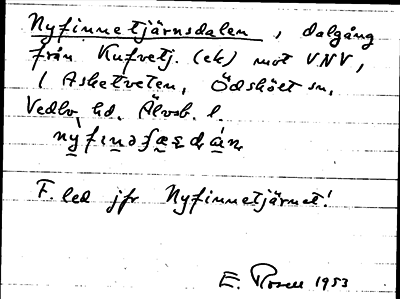 Nyfinnetjärnsdalen, dalgång
från Kufvetj. (ek) mot VNV,
i Asketveten, Ödskölt sn,
Vedbo hd. Älvsb. l.
F. led jfr Nyfinnetjärnet!
E. Rosell 1953